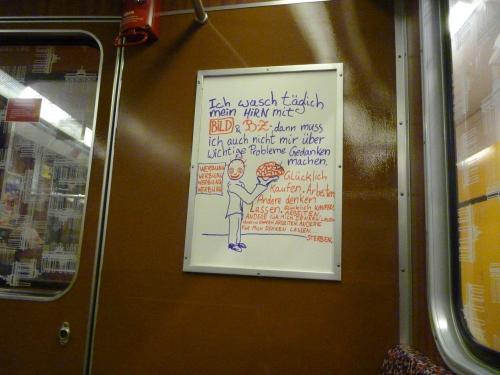 Ich wasch täglich
mein HiRN mit
BILD & B·Z· dann muss
ich auch nicht mir über
wichtige Probleme Gedanken
machen.
WERBUNG
WERBUNG
WERBUNG
WERBUNG
Glücklich
Kaufen. Arbeiten
Andere denken
Lassen. Glücklich KAUFEN.
ARBEITEN.
ANDERE FÜR MICH DENKEN LASSEN
KAUFEN ARBEITEN ANDERE
FÜR MICH DENKEN LASSEN...
STERBEN.